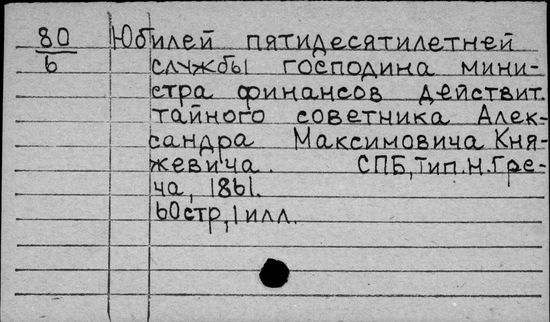 80
6
Юбилей пятидесятилетней
службы господина мини-
стра финансов действит.
тайного советника Алек-
сандра Максимовича Кня-
жевича. СПБ, тип. Н. Гре-
ча, 1861.
60 стр, 1 илл.